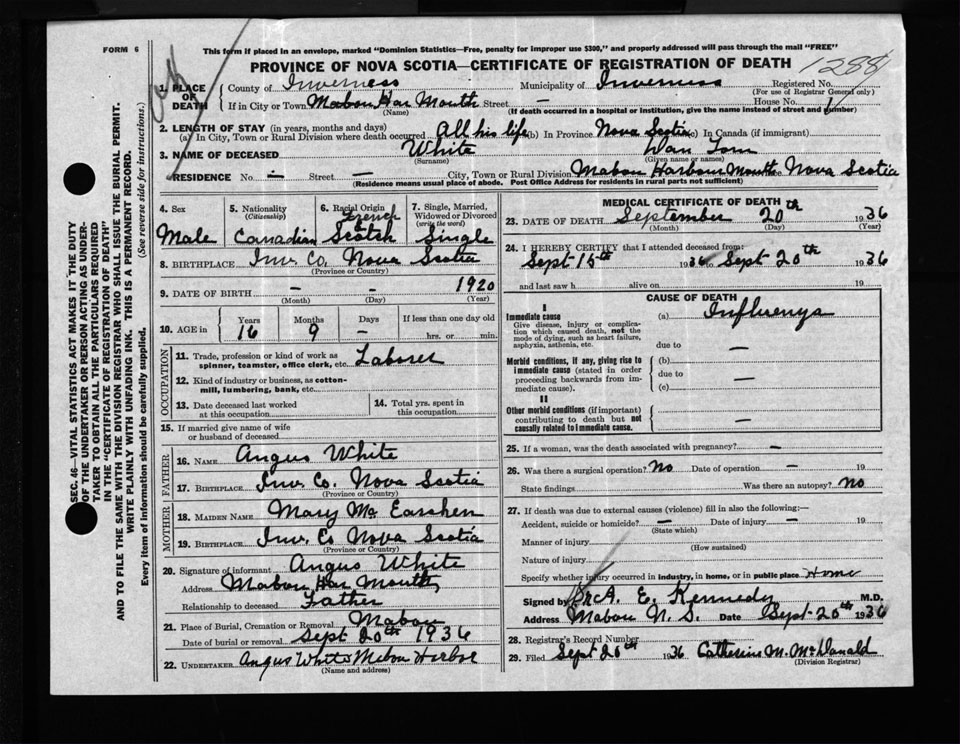 FORM 6
This form if placed in an envelope, marked "Dominion Statistics—Free, penalty for improper use $300," and properly addressed will pass through the mail "FREE"
PROVINCE OF NOVA SCOTIA—CERTIFICATE OF REGISTRATION OF DEATH
1288
1. PLACE OF DEATH
County of Inverness Municipality of Inverness Registered No.
(For use of Registrar General only)
If in City or Town Mabou Har Mouth Street — House No. 1
(Name) (If death occurred in a hospital or institution, give the name instead of street and number)
2. LENGTH OF STAY (in years, months and days)
(a) In City, Town or Rural Division where death occurred All his life (b) In Province Nova Scotia (c) In Canada (if immigrant)
3. NAME OF DECEASED White Dan Tom
(Surname) (Given name or names)
RESIDENCE No — Street — City, Town or Rural Division Mabou Harbour Mouth Nova Scotia
(Residence means usual place of abode. Post Office Address for residents in rural parts not sufficient)
4. Sex 5. Nationality (Citizenship) 6. Racial Origin 7. Single, Married, Widowed or Divorced (write the word)
Male Canadian French Scotch Single
8. BIRTHPLACE Inv Co. Nova Scotia
(Province or Country)
9. DATE OF BIRTH — — 1920
(Month) (Day) (Year)
10. AGE in Years Months Days If less than one day old
16 9 — hrs. or min.
OCCUPATION
11. Trade, profession or kind of work as spinner, teamster, office clerk, etc. Laborer
12. Kind of industry or business, as cotton-mill, lumbering, bank, etc.
13. Date deceased last worked at this occupation
14. Total yrs. spent in this occupation
15. If married give name of wife or husband of deceased
FATHER
16. NAME Angus White
17. BIRTHPLACE Inv. Co. Nova Scotia
(Province or Country)
MOTHER
18. MAIDEN NAME Mary Mc Eachen
19. BIRTHPLACE Inv. Co Nova Scotia
(Province or Country)
20. Signature of informant Angus White
Address Mabou Har Mouth,
Relationship to deceased Father
21. Place of Burial, Cremation or Removal Mabou
Date of burial or removal Sept 20th 1936
22. UNDERTAKER Angus White Mabou Harbor
(Name and address)
MEDICAL CERTIFICATE OF DEATH
23. DATE OF DEATH September 20th 1936
(Month) (Day) (Year)
24. I HEREBY CERTIFY that I attended deceased from:
Sept 15th 1936 to Sept 20th 1936
and last saw h alive on 19
CAUSE OF DEATH
I
Immediate cause
Give disease, injury or complication which caused death, not the mode of dying, such as heart failure, asphyxia, asthenia, etc.
(a) Influenza
due to —
Morbid conditions, if any, giving rise to immediate cause (stated in order proceeding backwards from immediate cause).
(b)
due to —
(c)
II
Other morbid conditions (if important) contributing to death but not causally related to immediate cause.
—
25. If a woman, was the death associated with pregnancy? —
26. Was there a surgical operation? No Date of operation — 19
State findings Was there an autopsy? No
27. If death was due to external causes (violence) fill in also the following:—
Accident, suicide or homicide? — Date of injury — 19
(State which)
Manner of injury
(How sustained)
Nature of injury
Specify whether injury occurred in industry, in home, or in public place Home
Signed by Dr A. E. Kennedy M.D.
Address Mabou N. S. Date Sept-20th 1936
28. Registrar's Record Number
29. Filed Sept 20th 1936 Catherine M. McDonald
(Division Registrar)
SEC. 46—VITAL STATISTICS ACT MAKES IT THE DUTY
OF THE UNDERTAKER OR PERSON ACTING AS UNDER-
TAKER TO OBTAIN ALL THE PARTICULARS REQUIRED
IN THE "CERTIFICATE OF REGISTRATION OF DEATH"
AND TO FILE THE SAME WITH THE DIVISION REGISTRAR WHO SHALL ISSUE THE BURIAL PERMIT.
WRITE PLAINLY WITH UNFADING INK. THIS IS A PERMANENT RECORD.
Every item of information should be carefully supplied. (See reverse side for instructions.)